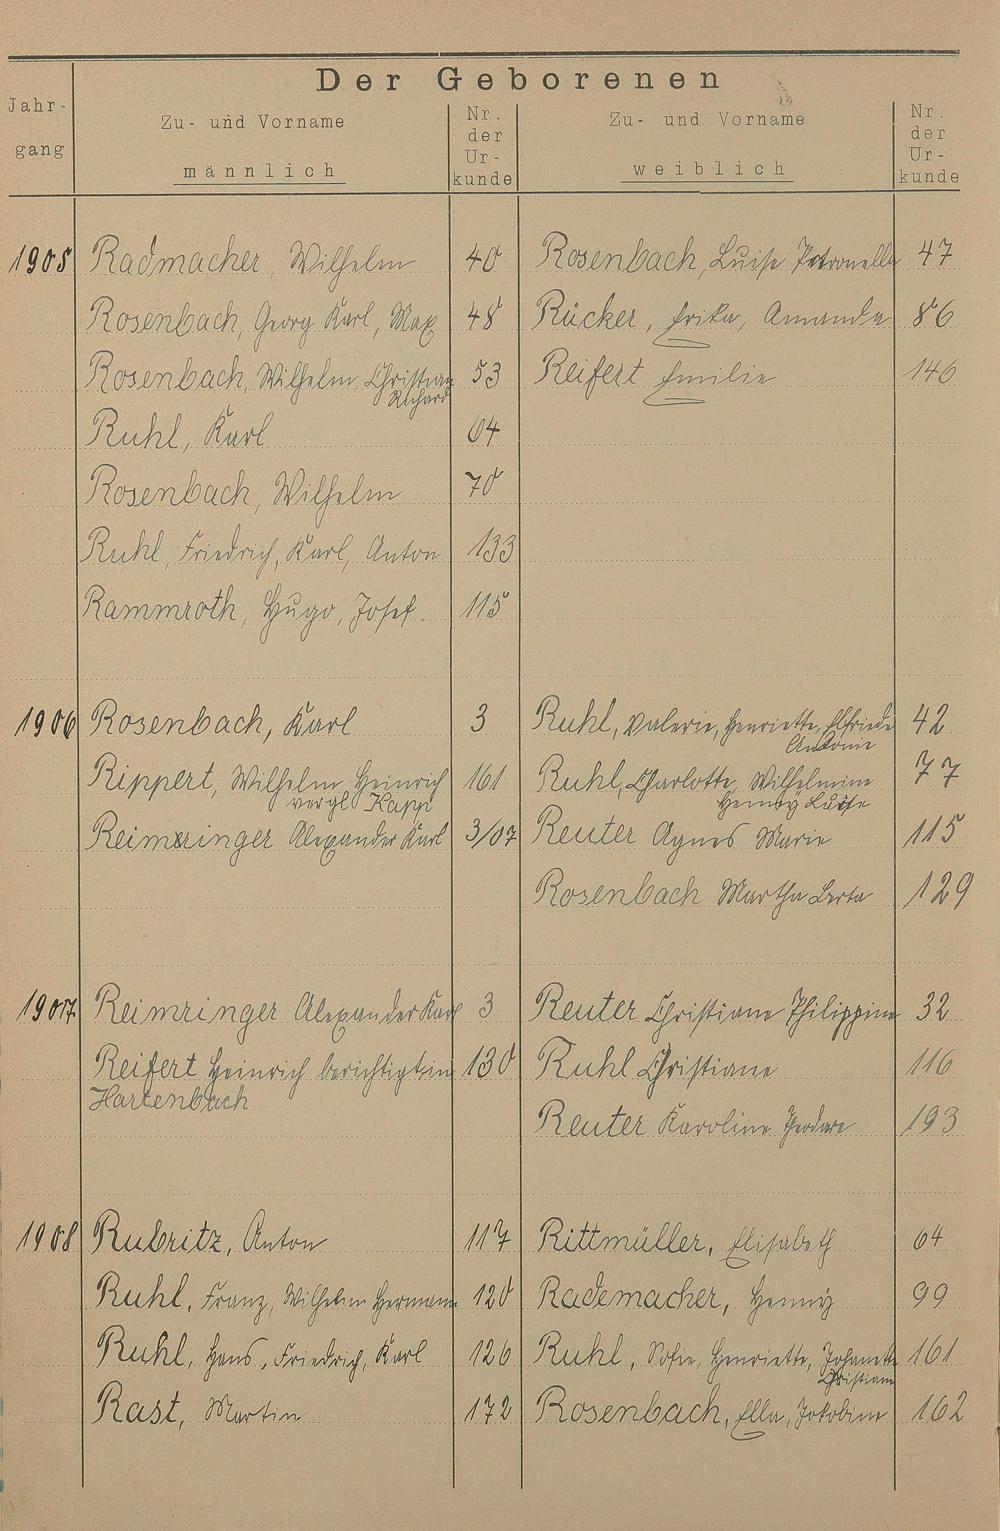 Der Geborenen
Jahr-
gang
Zu- und Vorname
männlich
Nr.
der
Ur-
kunde
Zu- und Vorname
weiblich
Nr.
der
Ur-
kunde
1905 Radmacher, Wilhelm 40 Rosenbach, Luise Petronella 47
Rosenbach, Georg Karl, Max 48 Rücker, Erika, Amanda 86
Rosenbach, Wilhelm Christian 53 Reifert Emilie 146
Richard
Ruhl, Karl 64
Rosenbach, Wilhelm 70
Ruhl, Friedrich, Karl, Anton 133
Rammroth, Hugo, Josef. 115
1906 Rosenbach, Karl 3 Ruhl, Valerie, Henriette, Elfriede 42
Antonie
Rippert, Wilhelm Heinrich 161 Ruhl, Charlotte, Wilhelmine 77
vergl. Kapp Henny Luise
Reimringer Alexander Karl 3/07 Reuter Agnes Marie 115
Rosenbach Martha Berta 129
1907 Reimringer Alexander Karl 3 Reuter Christiane Philippine 32
Reifert Heinrich berichtigt in 130 Ruhl Christiane 116
Hartenbach
Reuter Karoline Theodore 193
1908 Rubritz, Anton 117 Rittmüller, Elisabeth 64
Ruhl, Franz, Wilhelm Hermann 120 Rademacher, Henny 99
Ruhl, Hans, Friedrich, Karl 126 Ruhl, Sofie, Henriette, Johanette 161
Christiane
Rast, Martin 172 Rosenbach, Ella, Jakobine 162